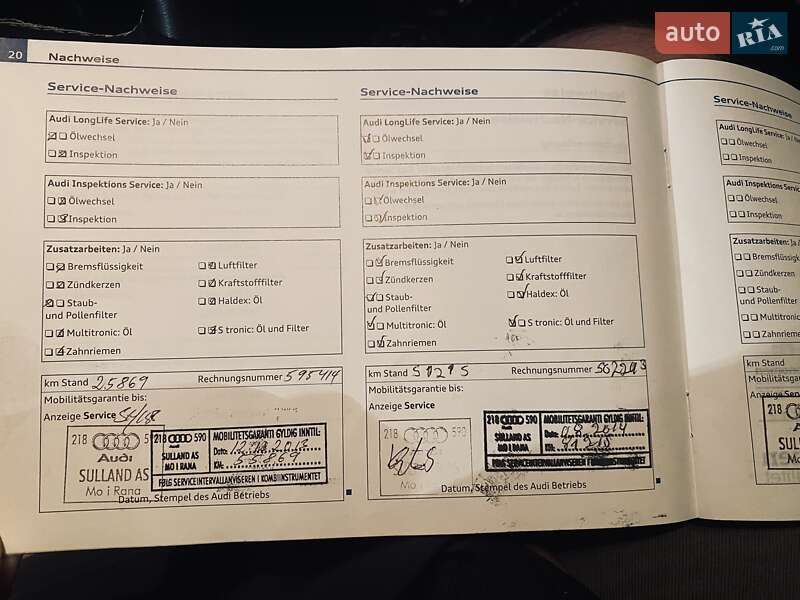 auto RIA.com
20 Nachweise
Service-Nachweise
Audi LongLife Service: Ja / Nein
Ölwechsel
Inspektion
Audi Inspektions Service: Ja / Nein
Ölwechsel
Inspektion
Zusatzarbeiten: Ja / Nein
Bremsflüssigkeit
Luftfilter
Zündkerzen
Kraftstofffilter
Staub-
und Pollenfilter
Haldex: Öl
Multitronic: Öl
S tronic: Öl und Filter
Zahnriemen
km Stand 25869 Rechnungsnummer 595414
Mobilitätsgarantie bis:
Anzeige Service
218 590
Audi
SULLAND AS
Mo i Rana
218 590
SULLAND AS
MO I RANA
MOBILITETSGARANTI GYLDIG INNTIL:
Dato:
KM:
FØLG SERVICEINTERVALLANVISEREN I KOMBIINSTRUMENTET
Datum, Stempel des Audi Betriebs
Service-Nachweise
Audi LongLife Service: Ja / Nein
Ölwechsel
Inspektion
Audi Inspektions Service: Ja / Nein
Ölwechsel
Inspektion
Zusatzarbeiten: Ja / Nein
Bremsflüssigkeit
Luftfilter
Zündkerzen
Kraftstofffilter
Staub-
und Pollenfilter
Haldex: Öl
Multitronic: Öl
S tronic: Öl und Filter
Zahnriemen
km Stand 51215 Rechnungsnummer
Mobilitätsgarantie bis:
Anzeige Service
218 590
218 590
SULLAND AS
MO I RANA
MOBILITETSGARANTI GYLDIG INNTIL:
Dato:
KM:
FØLG SERVICEINTERVALLANVISEREN I KOMBIINSTRUMENTET
Datum, Stempel des Audi Betriebs
Service-Nachweise
Audi LongLife Service:
Ölwechsel
Inspektion
Audi Inspektions Service
Ölwechsel
Inspektion
Zusatzarbeiten: Ja
Bremsflüssig
Zündkerzen
Staub-
und Pollenfilter
Multitronic: Öl
Zahnriemen
km Stand
Mobilitätsgarantie
Anzeige
218
Audi
SULLAND
Mo i R